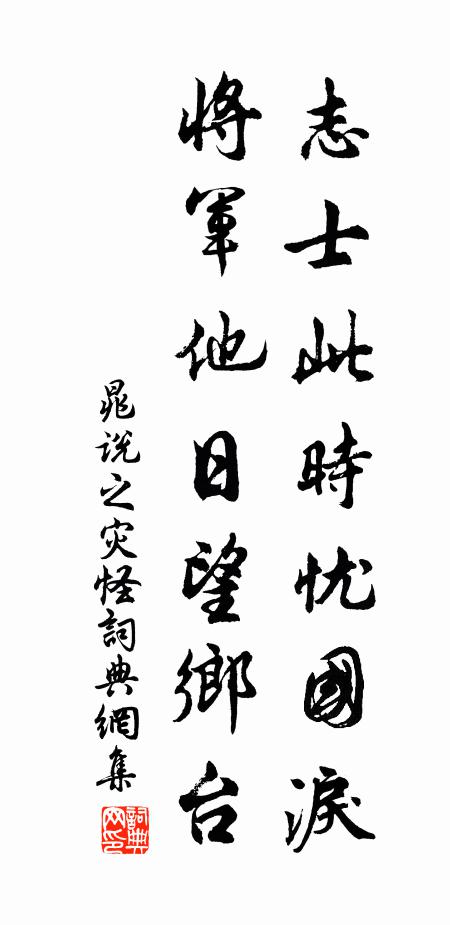 志士此時忧國淚
將軍他日望鄉台
晁说之灾怪詞典網集
詞典网印